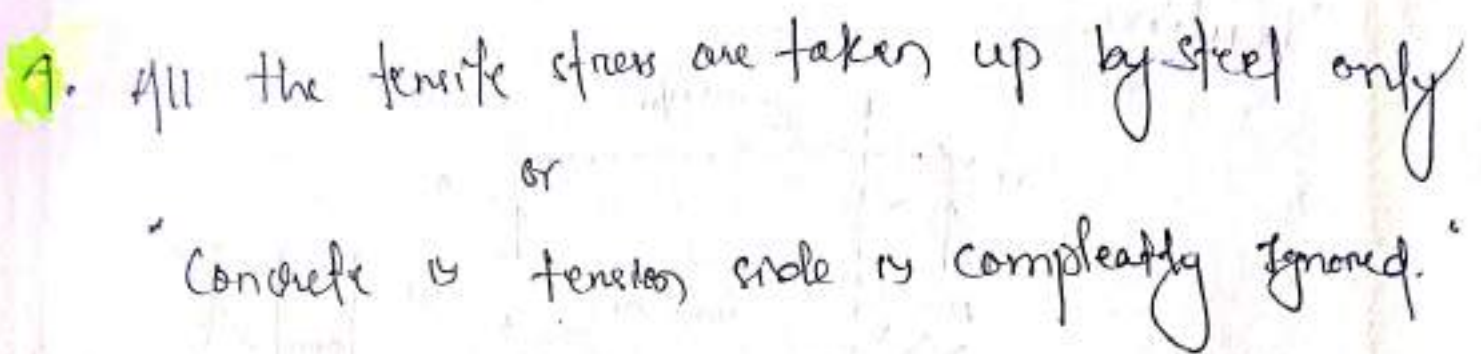 1. All the tensile stress are taken up by steel only
or
"Concrete is tension side is compleatly Ignored."